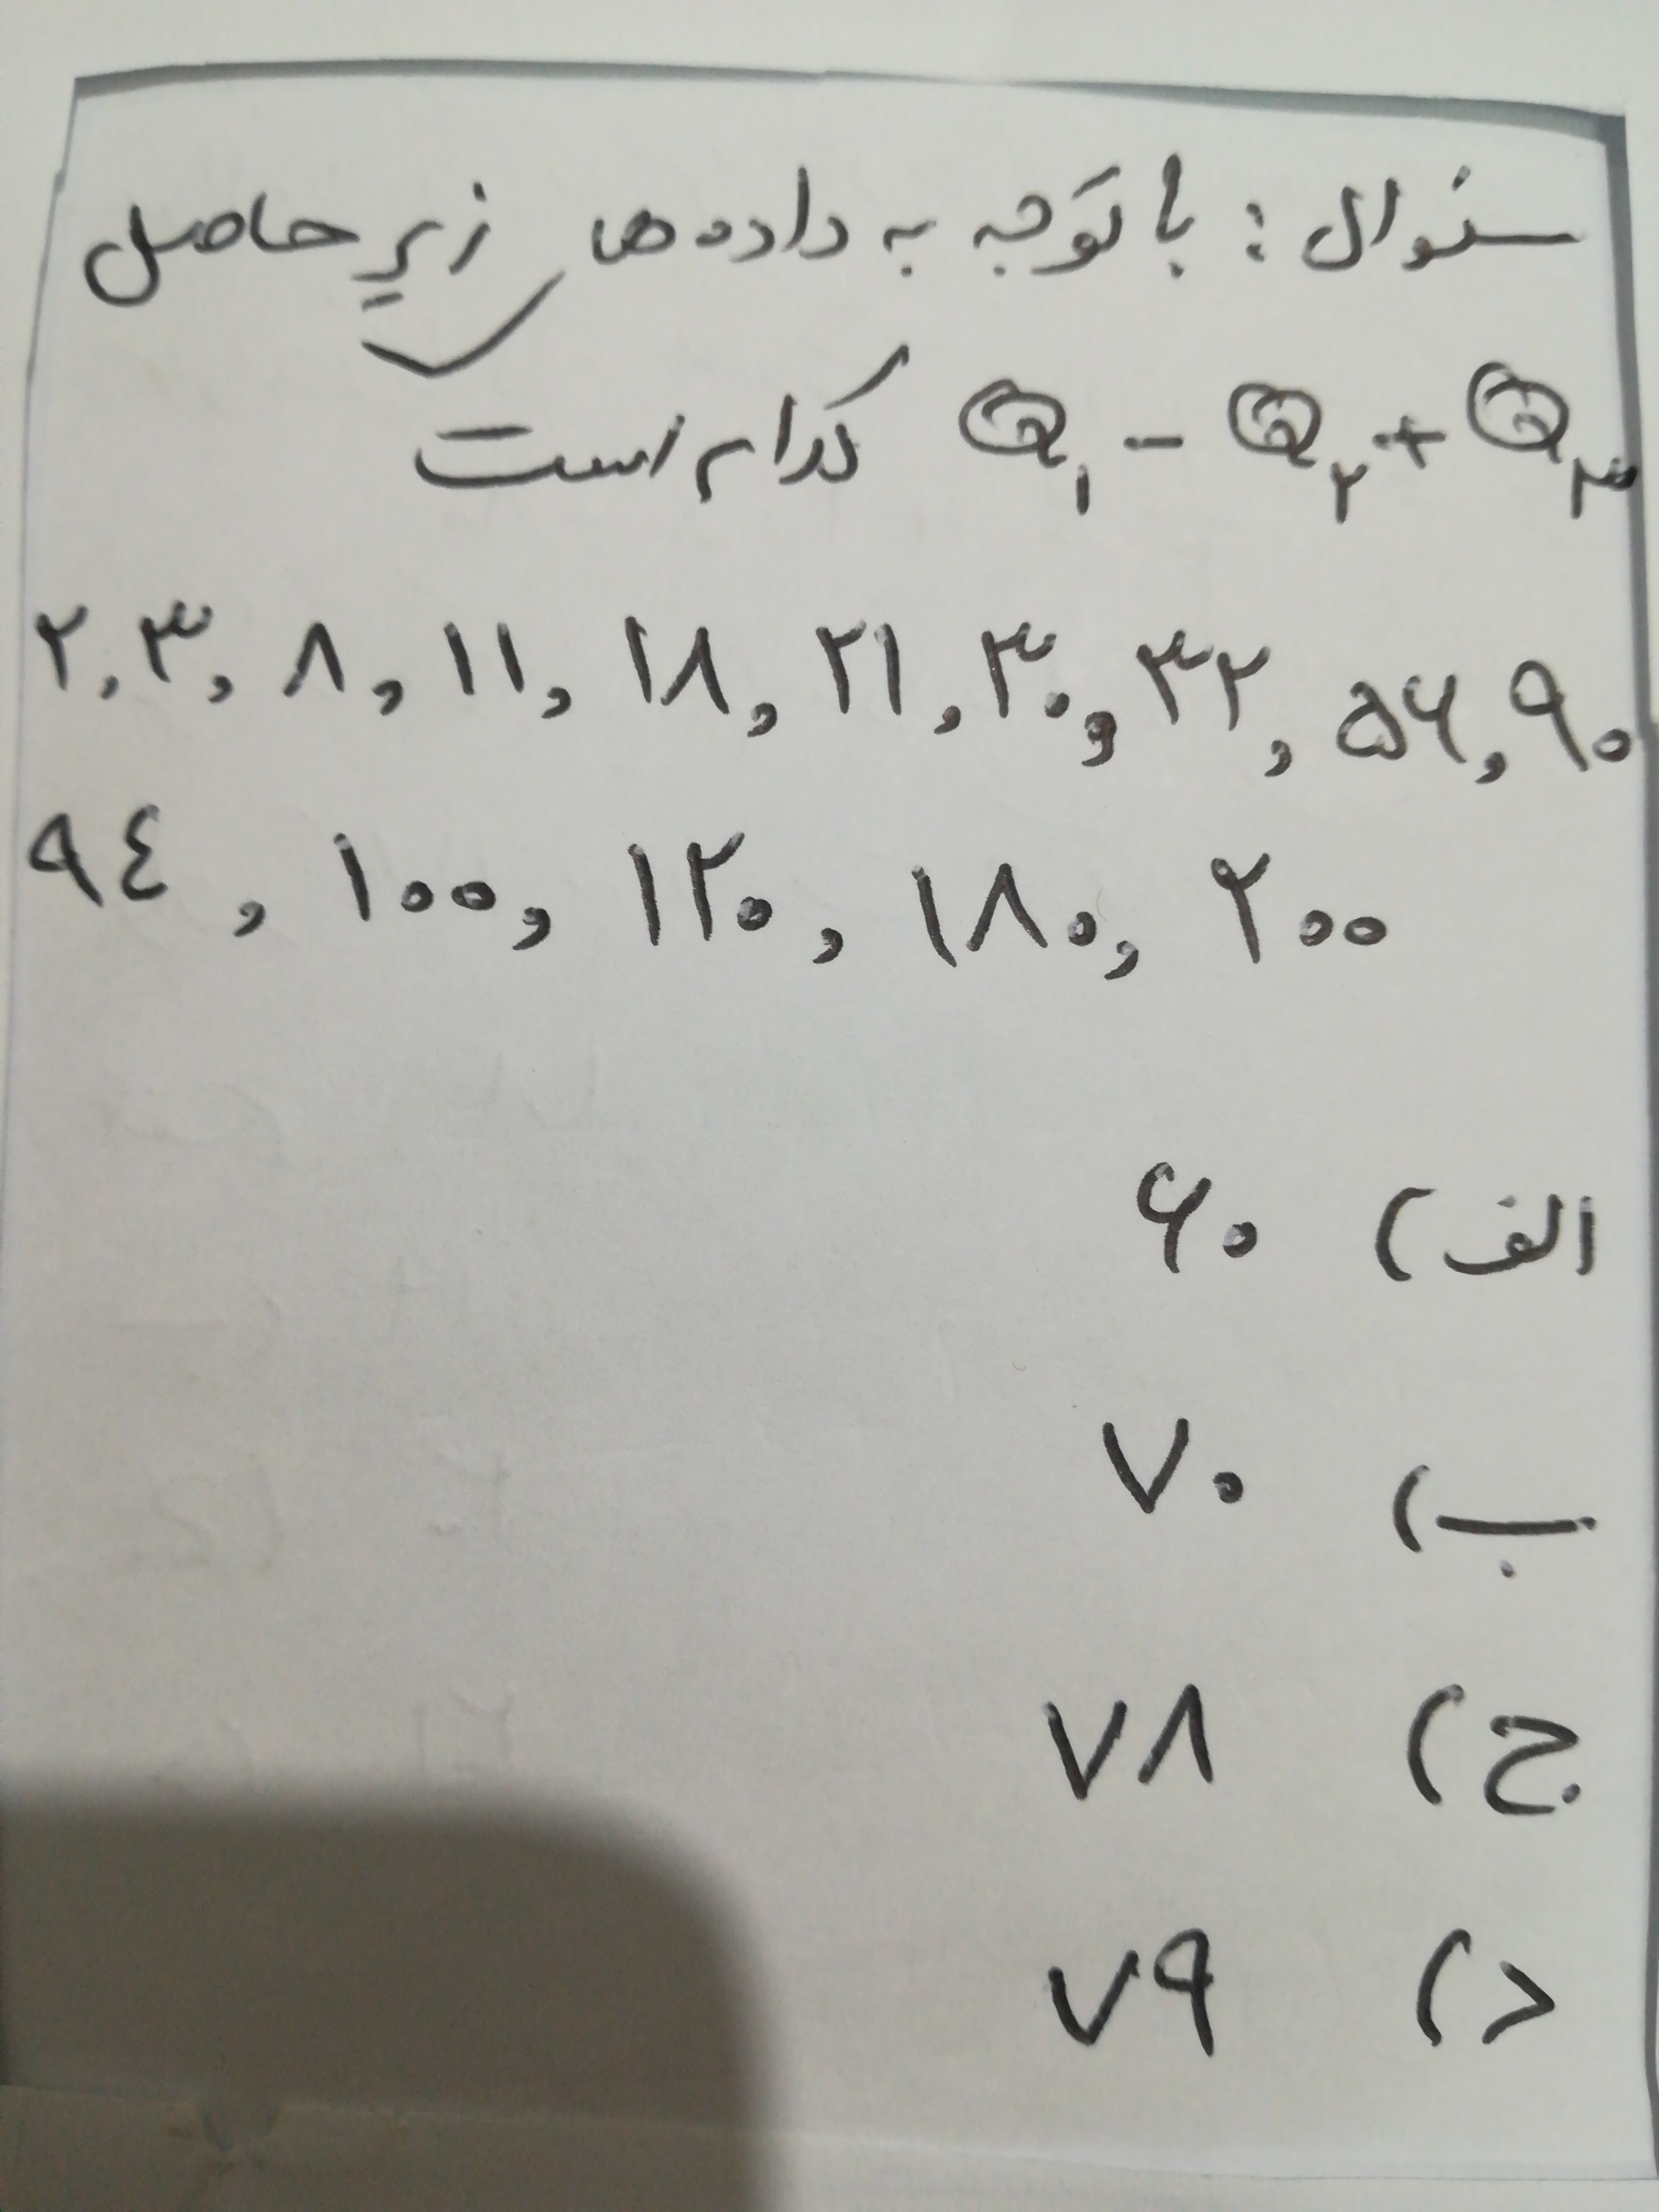 سئوال : با توجه به داده ها زیر حاصل
Q۱ - Q۲ + Q۳ کدام است
۲, ۳, ۸, ۱۱, ۱۸, ۲۱, ۳۰, ۳۲, ۵۶, ۹۰
۹٤, ۱۰۰, ۱۲۰, ۱۸۰, ۲۰۰
الف) ۶۰
ب) ۷۰
ج) ۷۸
د) ۷۹